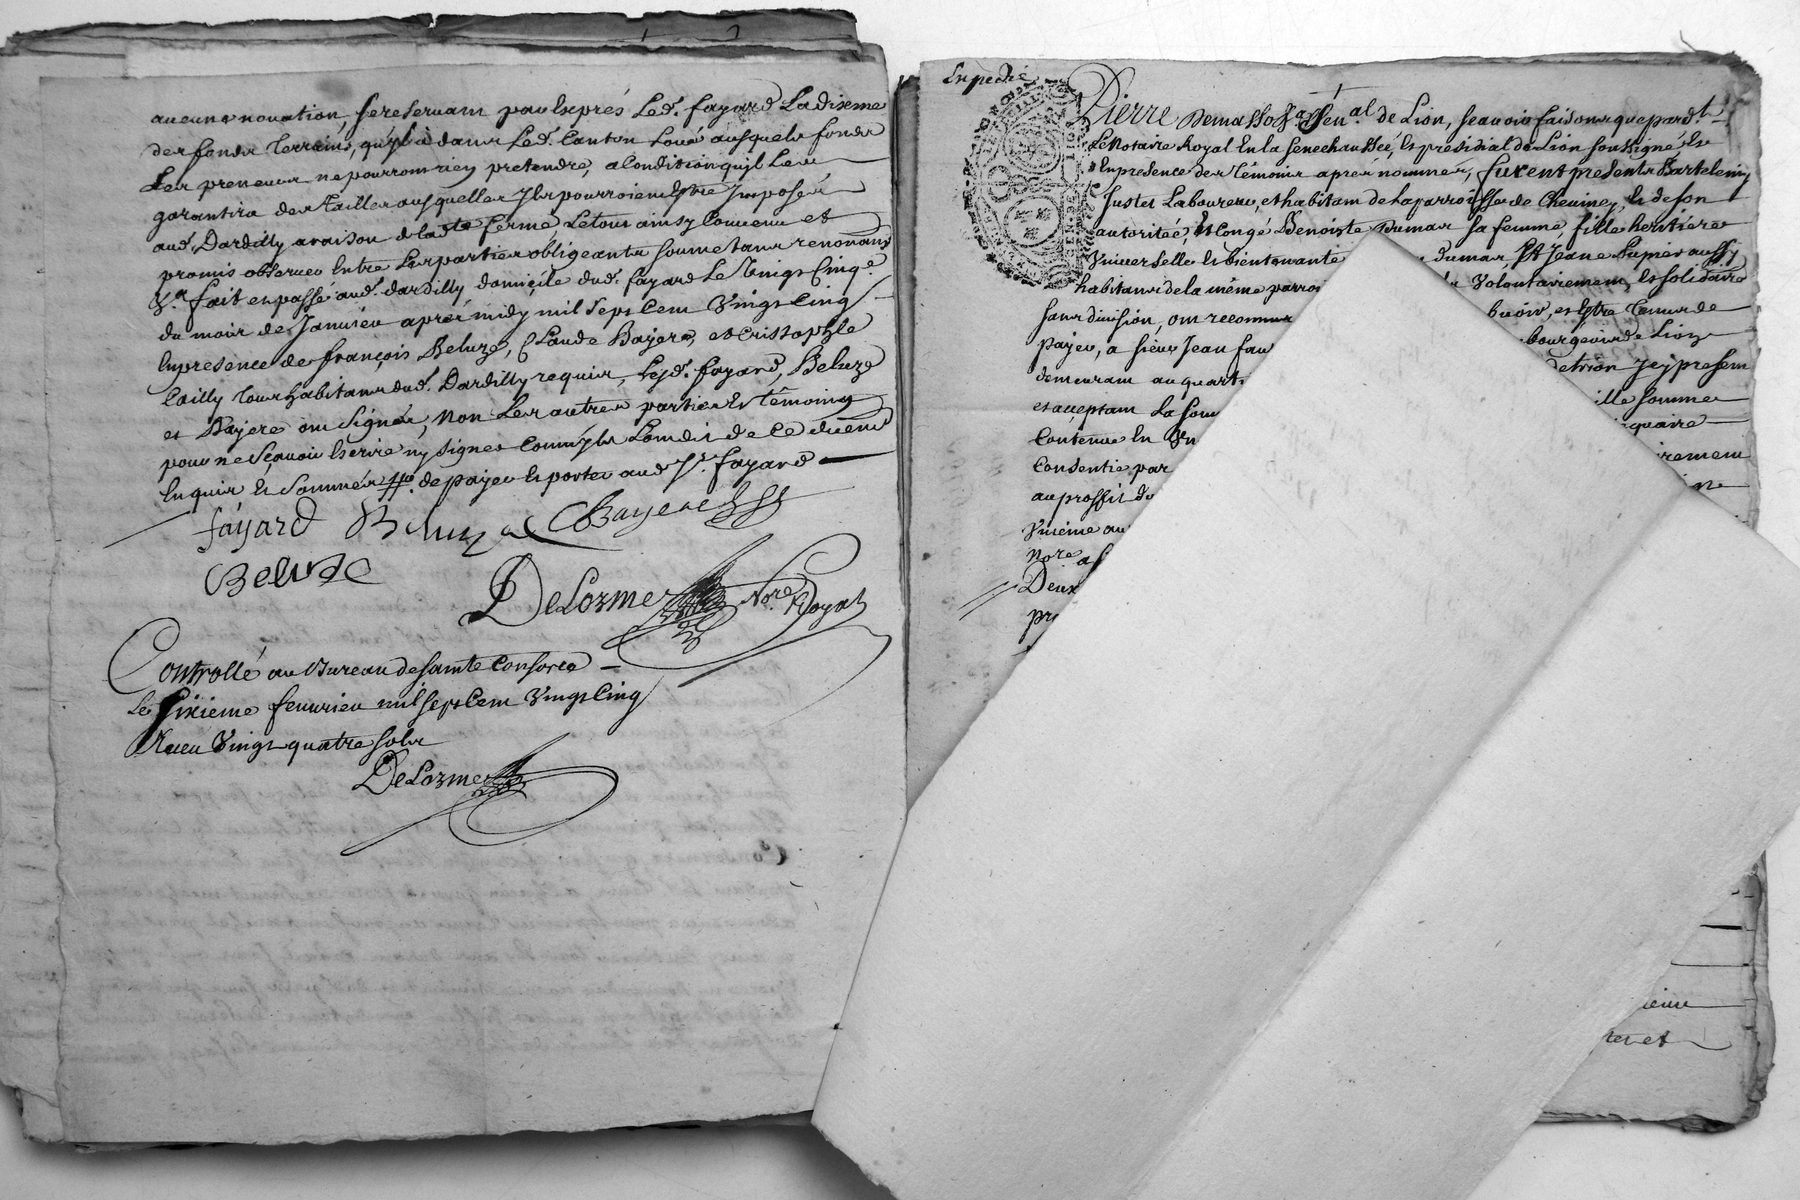 aucune novation, se reservant par exprés Led. fayard La dixme
des fonds Terreins, qu'yl a dans Led. Canton Loué ausquels fonds
Les preneurs ne pourront rien pretendre, a Condition qu'il Les
garantira des Tailles ausquelles yls pourroient Estre Imposés
aud. Dardilly a raison de lade ferme Le tout ainsy Convenu et
promis observer Entre Les parties obligeants soumetants renonçants
fait et passé aud. dardilly domicile dud. fayard Le Vingt Cinqe.
du mois de Janvier aprés midy mil Sept Cent Vingt Cinq
En presence de françois Beluze, Claude Bayere, et Cristophle
Lailly tous habitants dud. Dardilly requis, Lesd. fayard, Beluze
et Bayere ont Signés, Non Les autres parties Et têmoins
pour ne Sçavoir Escrire ny signer Comm'yls L'ont dit de Ce duement
Enquis et Sommés de payer et porter aud Sr. fayard
fayard Beluze CBayere
Beluze
DeLorme Nore. Royal
Controllé au Bureau de sainte Consorce
Le Sixieme fevrier mil sept Cent Vingt Cinq
Receu Vingt quatre sols
DeLorme
Expedié
Pierre Demasso Senal de Lion, scavoir faisons que pardt
Le Notaire Royal En la Senechaussée, Et presidial de Lion soussigné Et
En presence des têmoins aprés nommés, furent presents Bartelemy
Juttet Laboureur, et habitant de La parroisse de Chevinay, Et de son
autoritée, Et Congé Benoiste Dumas sa femme, fille heritiere
Universelle Et bientenante Dumas Et Jeane Dupier aussy
habitants de la même parroi Volontairement, Et solidaire
sans division, ont reconnus devoir, et Estre tenus de
payer, a sieur Jean fau bourgeois de Lion
demeurant au quarti jcy present
et acceptant La som mille somme
Contenue En Un
Consentie par
au proffit du
Nore.
Deux